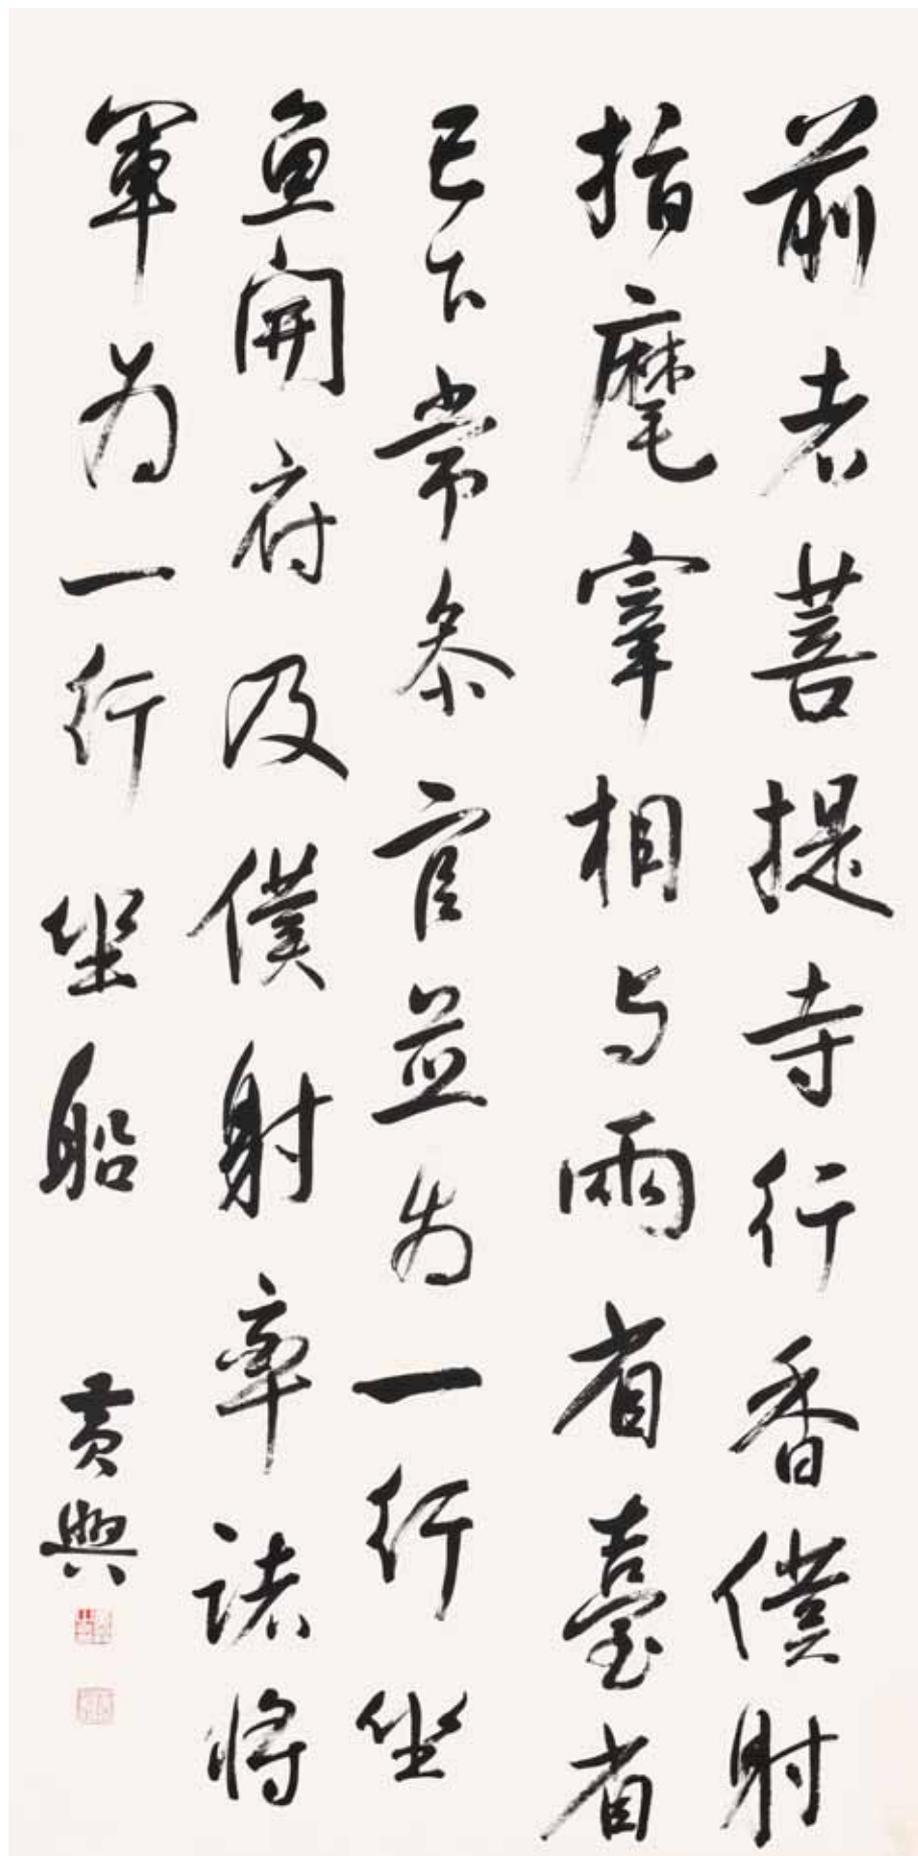 前者菩提寺行香僕射
指麾宰相与兩省臺省
已下常参官並为一行坐
魚開府及僕射率諸将
軍为一行坐船
黄興